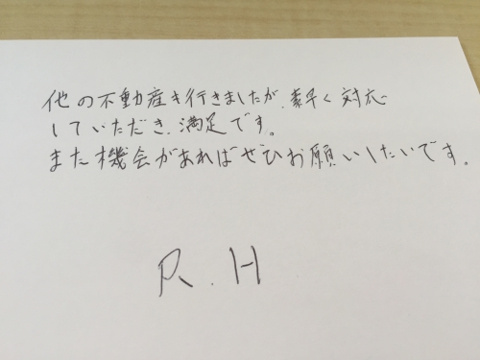 他の不動産も行きましたが、素早く対応
していただき、満足です。
また機会があればぜひお願いしたいです。
R.H